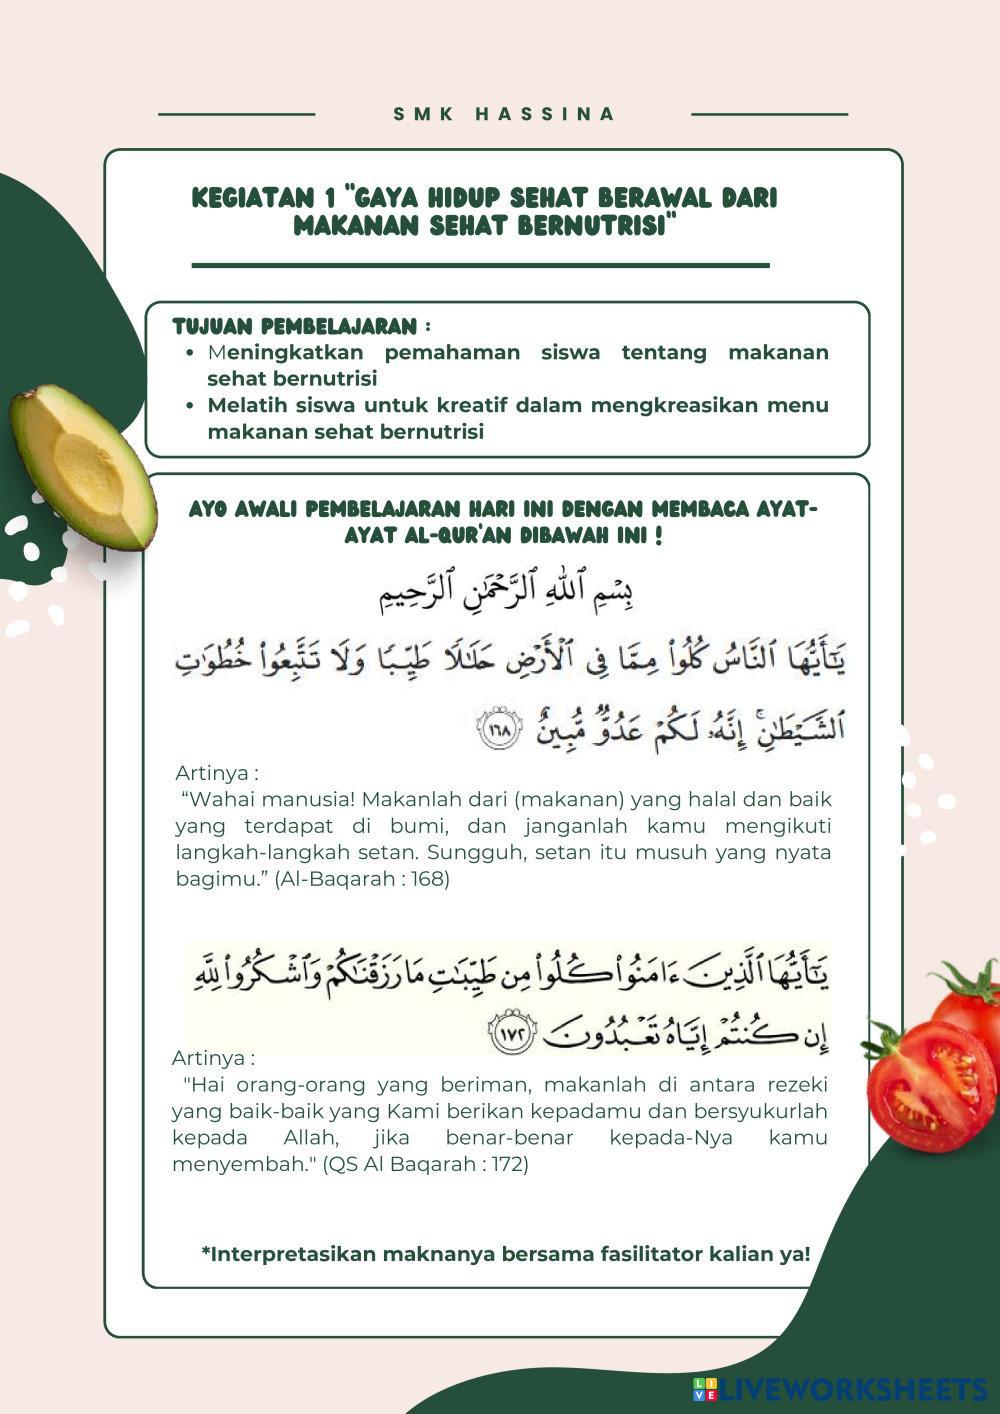 SMK HASSINA
KEGIATAN 1 "GAYA HIDUP SEHAT BERAWAL DARI
MAKANAN SEHAT BERNUTRISI"
TUJUAN PEMBELAJARAN :
• Meningkatkan pemahaman siswa tentang makanan
sehat bernutrisi
• Melatih siswa untuk kreatif dalam mengkreasikan menu
makanan sehat bernutrisi
AYO AWALI PEMBELAJARAN HARI INI DENGAN MEMBACA AYAT-
AYAT AL-QUR'AN DIBAWAH INI !
بِسْمِ ٱللَّهِ ٱلرَّحْمَٰنِ ٱلرَّحِيمِ
يَٰٓأَيُّهَا ٱلنَّاسُ كُلُوا۟ مِمَّا فِى ٱلْأَرْضِ حَلَٰلًا طَيِّبًا وَلَا تَتَّبِعُوا۟ خُطُوَٰتِ
ٱلشَّيْطَٰنِ ۚ إِنَّهُۥ لَكُمْ عَدُوٌّ مُّبِينٌ ١٦٨
Artinya :
“Wahai manusia! Makanlah dari (makanan) yang halal dan baik
yang terdapat di bumi, dan janganlah kamu mengikuti
langkah-langkah setan. Sungguh, setan itu musuh yang nyata
bagimu.” (Al-Baqarah : 168)
يَٰٓأَيُّهَا ٱلَّذِينَ ءَامَنُوا۟ كُلُوا۟ مِن طَيِّبَٰتِ مَا رَزَقْنَٰكُمْ وَٱشْكُرُوا۟ لِلَّهِ
إِن كُنتُمْ إِيَّاهُ تَعْبُدُونَ ١٧٢
Artinya :
"Hai orang-orang yang beriman, makanlah di antara rezeki
yang baik-baik yang Kami berikan kepadamu dan bersyukurlah
kepada Allah, jika benar-benar kepada-Nya kamu
menyembah." (QS Al Baqarah : 172)
*Interpretasikan maknanya bersama fasilitator kalian ya!
LIVE LIVEWORKSHEETS